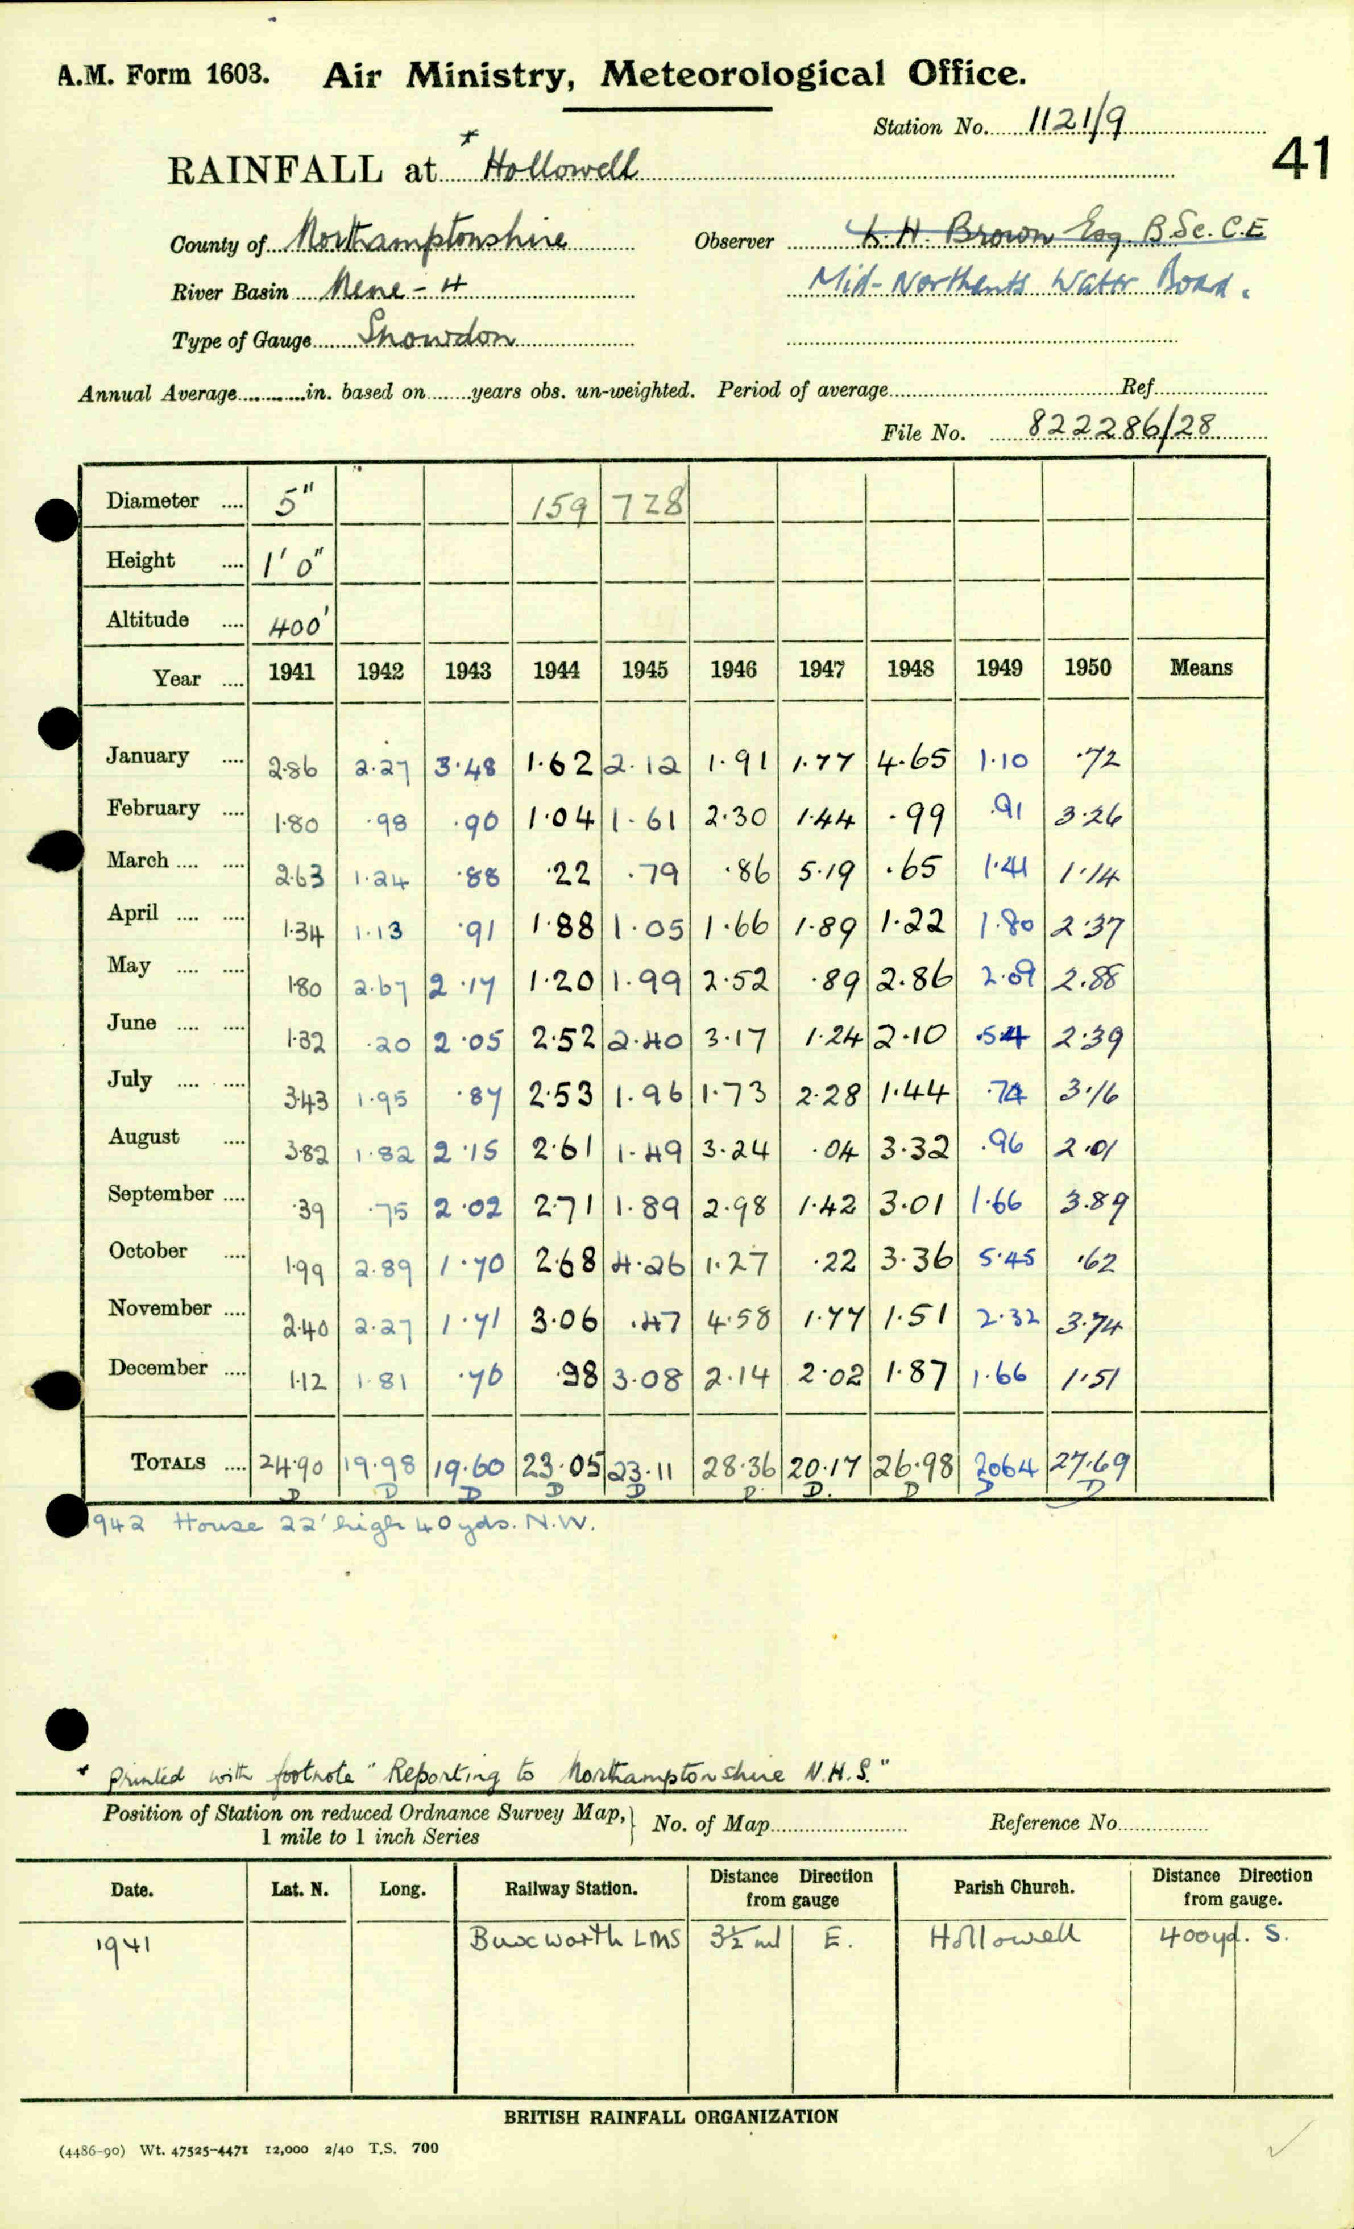 A.M. Form 1603. Air Ministry, Meteorological Office.
Station No. 1121/9
41
RAINFALL at * Hollowell
County of Northamptonshire Observer L. H. Brown Esq. B.Sc. C.E
River Basin Nene - 4 Mid-Northants Water Board.
Type of Gauge Snowdon
Annual Average in. based on years obs. un-weighted. Period of average Ref
File No. 822286/28
Diameter 5" 159 728
Height 1' 0"
Altitude 400'
Year 1941 1942 1943 1944 1945 1946 1947 1948 1949 1950 Means
January 2.86 2.27 3.48 1.62 2.12 1.91 1.77 4.65 1.10 .72
February 1.80 .98 .90 1.04 1.61 2.30 1.44 .99 .91 3.26
March 2.63 1.24 .88 .22 .79 .86 5.19 .65 1.41 1.14
April 1.34 1.13 .91 1.88 1.05 1.66 1.89 1.22 1.80 2.37
May 1.80 2.67 2.17 1.20 1.99 2.52 .89 2.86 2.09 2.88
June 1.32 .20 2.05 2.52 2.40 3.17 1.24 2.10 .54 2.39
July 3.43 1.95 .87 2.53 1.96 1.73 2.28 1.44 .74 3.16
August 3.82 1.82 2.15 2.61 1.49 3.24 .04 3.32 .96 2.01
September .39 .75 2.02 2.71 1.89 2.98 1.42 3.01 1.66 3.89
October 1.99 2.89 1.70 2.68 4.26 1.27 .22 3.36 5.45 .62
November 2.40 2.27 1.71 3.06 .47 4.58 1.77 1.51 2.32 3.74
December 1.12 1.81 .76 .98 3.08 2.14 2.02 1.87 1.66 1.51
TOTALS 24.90 19.98 19.60 23.05 23.11 28.36 20.17 26.98 2064 27.69
D D D D D D D. D D D
1942 House 22' high 40 yds. N.W.
* Printed with footnote "Reporting to Northamptonshire N.H.S."
Position of Station on reduced Ordnance Survey Map, 1 mile to 1 inch Series } No. of Map Reference No.
Date. Lat. N. Long. Railway Station. Distance Direction from gauge Parish Church. Distance Direction from gauge.
1941 Buxworth LMS 3½ ml E. Hollowell 400yd. S.
BRITISH RAINFALL ORGANIZATION
(4486-90) Wt. 47525-4471 12,000 2/40 T.S. 700